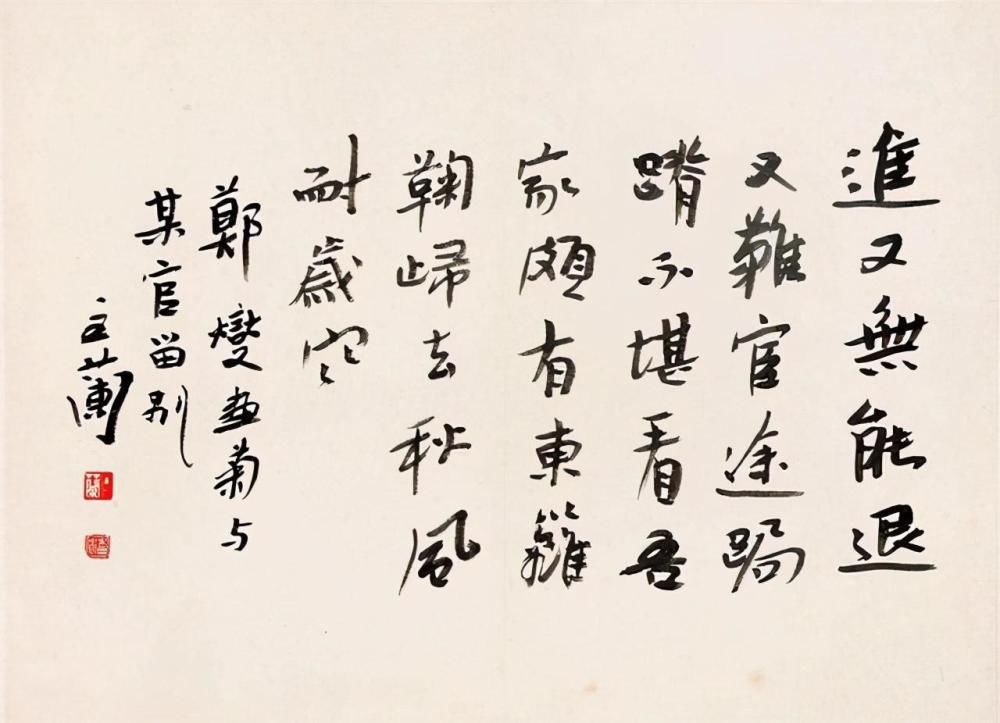 進又無能退
又難宦途跼
蹐不堪看吾
家頗有東籬
鞠歸去秋風
耐歲寒
鄭燮畫菊与
某官留别